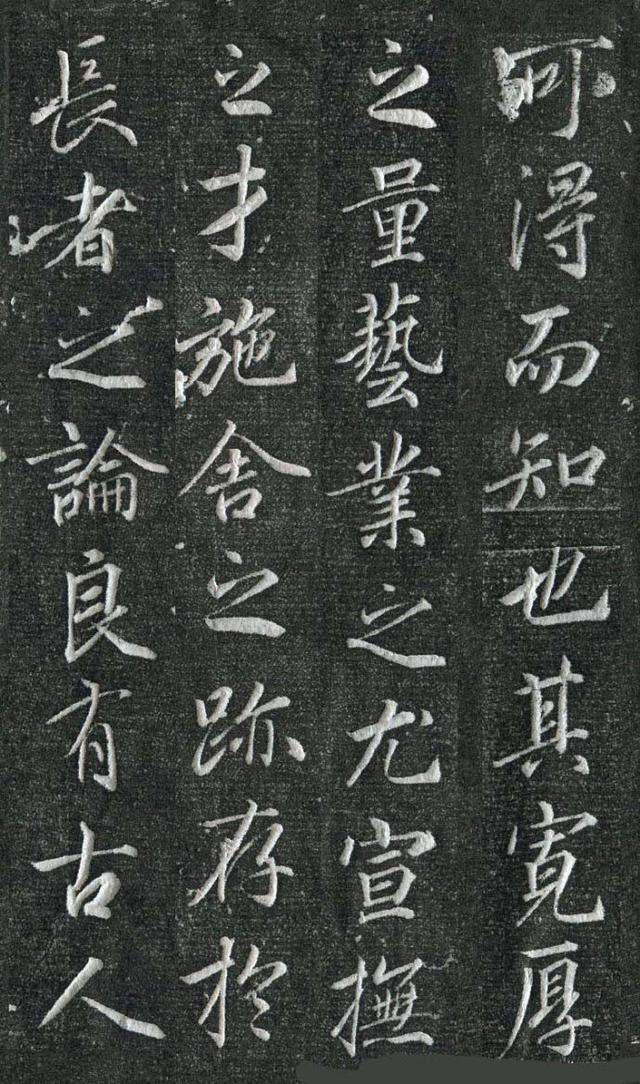 所得而知也其寛厚
之量藝業之尤宣撫
之才施舍之跡存於
長者之論良有古人